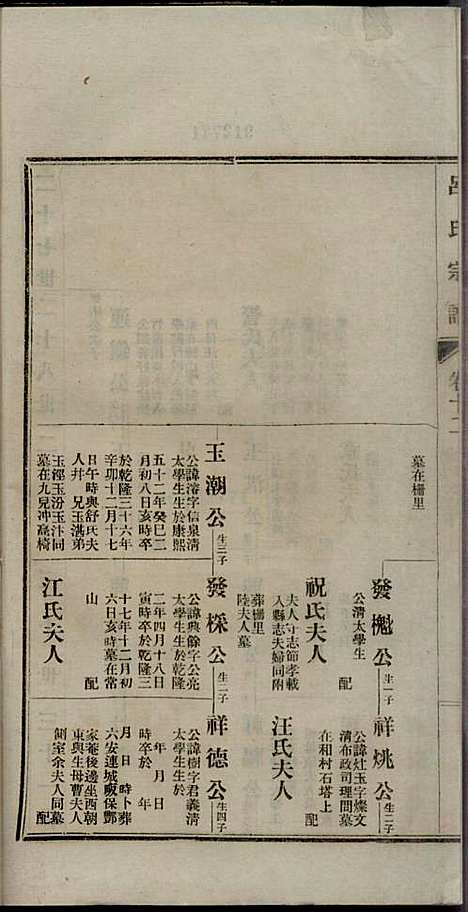 呂氏宗譜
卷十二
墓在柵里
發櫆公 生一子
公清太學生
配
祝氏夫人
夫人守志節孝載
入縣志夫婦同附
葬柵里
陸夫人墓
祥姚公 生二子
公諱灶玉字燦文
清布政司理問墓
在和村石塔上
配
汪氏夫人
玉潮公 生三子
公諱濬字信泉清
太學生生於康熙
五十二年癸巳二
月初八日亥時卒
於乾隆三十六年
辛卯十二月十七
日午時與舒氏夫
人幷 兄玉澫弟
玉溼玉汾玉汴同
墓在九兒沖高椅
山
發棌公 生二子
公諱興餘字公亮
太學生生於乾隆
二年四月十八日
寅時卒於乾隆三
十七年十二月初
六日亥時墓在常
山
配
江氏夫人
祥德公 生四子
公諱樹字君義清
太學生生於
年 月 日
時卒於 年
月 日 時卜葬
六安連城畈保鄷
家菴後邊坐西朝
東與生母曹夫人
側室余夫人同墓
配